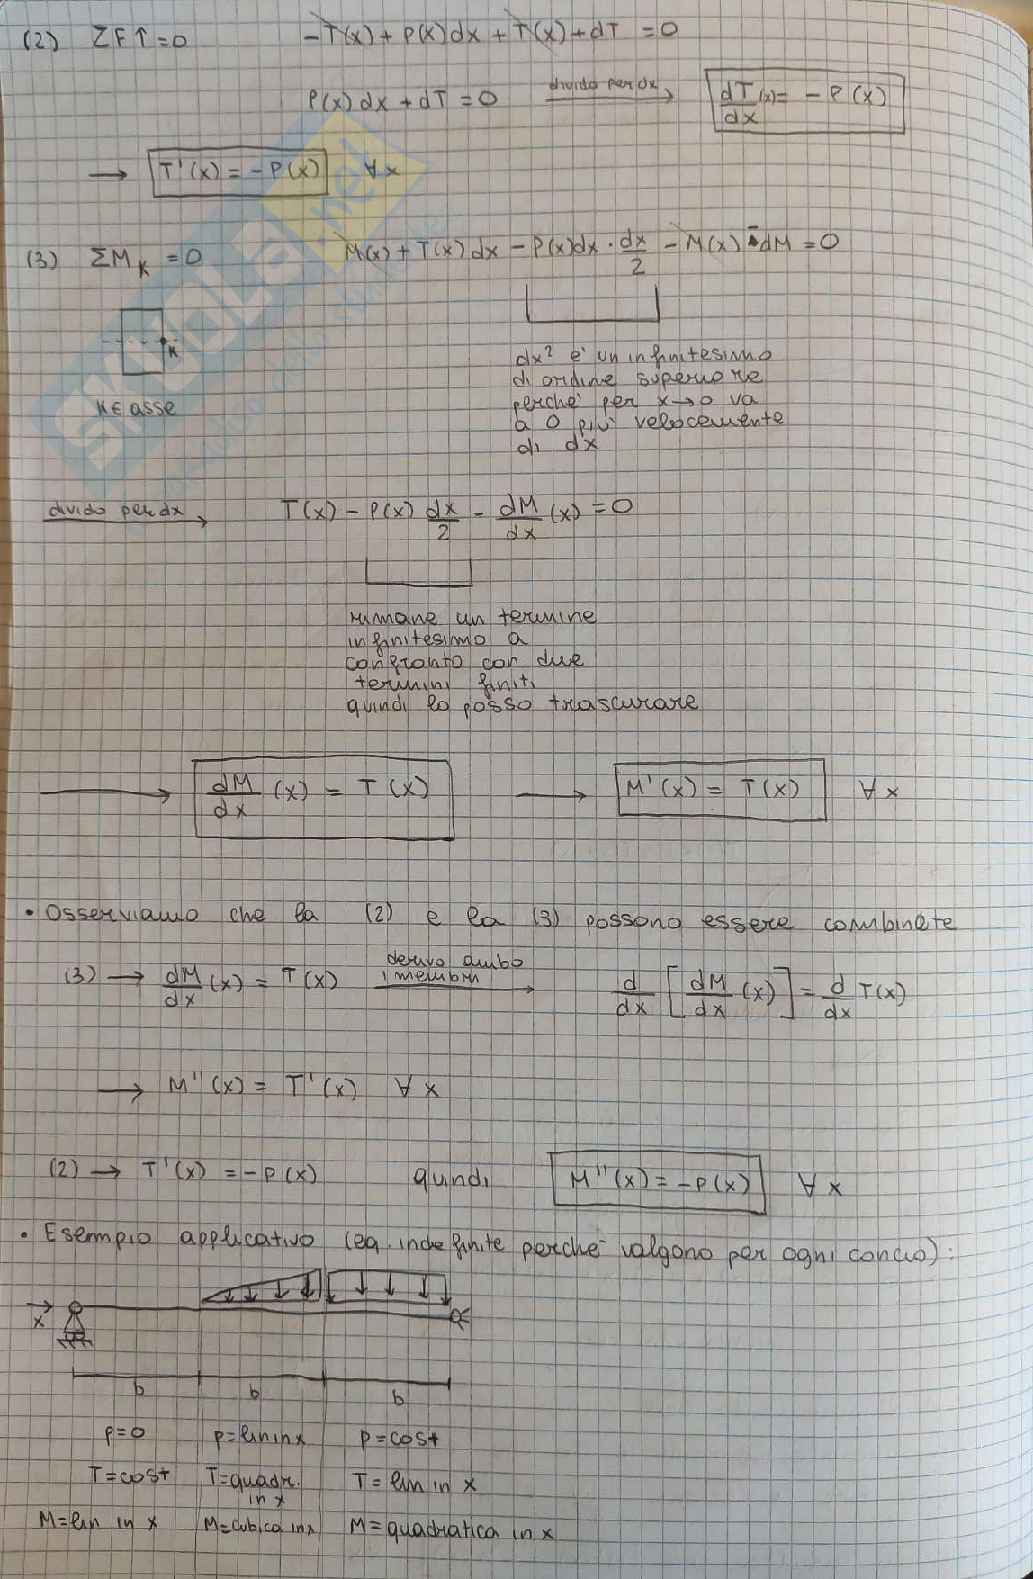 (2) ΣF↑=0 -T(x)+P(x)dx+T(x)+dT =0
P(x)dx+dT=0 divido per dx → dT/dx (x)= -P(x)
→ T'(x)=-P(x) ∀x
(3) ΣM_K =0 M(x)+T(x)dx-P(x)dx·dx/2 -M(x)-dM=0
K
K∈asse
dx² è un infinitesimo
di ordine superiore
perché per x→0 va
a 0 più velocemente
di dx
divido per dx → T(x)-P(x) dx/2 - dM/dx (x)=0
rimane un termine
infinitesimo a
confronto con due
termini finiti
quindi lo posso trascurare
→ dM/dx (x) = T(x) → M'(x)= T(x) ∀x
• Osserviamo che la (2) e la (3) possono essere combinate
(3) → dM/dx (x) = T(x) derivo ambo i membri → d/dx [dM/dx (x)] = d/dx T(x)
→ M''(x)= T'(x) ∀x
(2) → T'(x) =-P(x) quindi M''(x)=-P(x) ∀x
• Esempio applicativo (eq. indefinite perché valgono per ogni concio):
x
b b b
p=0 p=lin in x p=cost
T=cost T=quadr. in x T= lin in x
M=lin in x M=cubica in x M=quadratica in x
SKUOLA.net